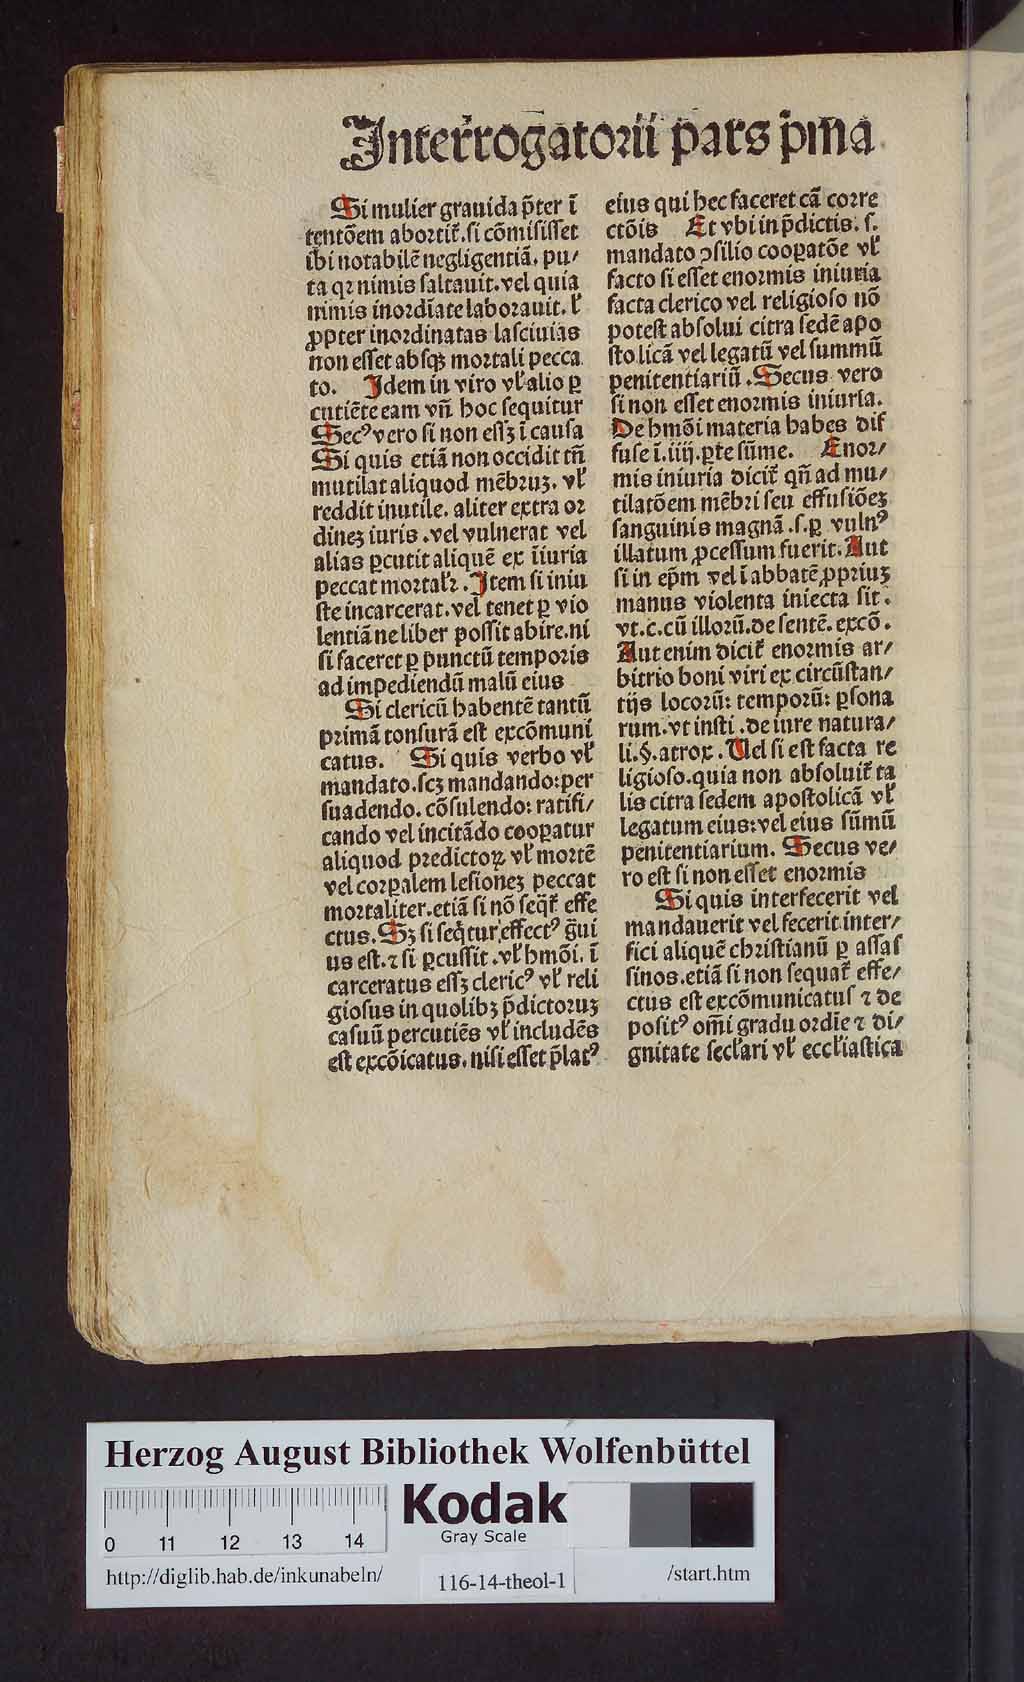 Interrogatorij pars pͥma
Si mulier grauida p̄ter ī
tentōem abortir̄.si cōmisisset
ibi notabilē negligentiā. pu⸗
ta qꝛ nimis saltauit.vel quia
nimis inordīate laborauit.vl̄
ꝓpter inordinatas lasciuias
non esset absqꝫ mortali pecca
to. Idem in viro vl̄ alio ꝑ
cutiēte eam vn̄ hoc sequitur
Secꝰ vero si non essꝫ ī causa
Si quis etiā non occidit tn̄
mutilat aliquod mēbruꝫ. vl̄
reddit inutile. aliter extra or
dineꝫ iuris .vel vulnerat vel
alias ꝑcutit aliquē ex īiuria
peccat mortalr̄. Item si iniu
ste incarcerat.vel tenet ꝑ vio
lentiā ne liber possit abire.ni
si faceret ꝑ punctū temporis
ad impediendū malū eius
Si clericū habentē tantū
primā tonsurā est excōmuni
catus. Si quis verbo vl̄
mandato.scꝫ mandando:per
suadendo. cōsulendo: ratifi⸗
cando vel incitādo cooꝑatur
aliquod predictoꝝ vl̄ mortē
vel corꝑalem lesioneꝫ peccat
mortaliter.etiā si nō seq̄t̄ effe
ctus. Sꝫ si seq̄tur effectꝰ g̈ui
us est.⁊ si ꝑcussit .vl̄ hmōi. ī
carceratus essꝫ clericꝰ vl̄ reli
giosus in quolibꝫ p̄dictoruꝫ
casuū percutiēs vl̄ includēs
est excōicatus. nisi esset p̄latꝰ
eius qui hec faceret cā corre
ctōis Et vbi in p̄dictis. s.
mandato ꝯsilio cooꝑatōe vl̄
facto si esset enormis iniuria
facta clerico vel religioso nō
potest absolui citra sedē apo
stolicā vel legatū vel summū
penitentiariū .Secus vero
si non esset enormis iniuria.
De hmōi materia habes dif
fuse ī.iiij.ꝑte sūme. Enor⸗
mis iniuria dicit̄ qn̄ ad mu⸗
tilatōem mēbri seu effusiōeꝫ
sanguinis magnā .s.ꝑ vulnꝰ
illatum ꝓcessum fuerit. Aut
si in ep̄m vel ī abbatē ꝓpriuꝫ
manus violenta iniecta sit.
vt.c.cū illorū.de sentē. excō.
Aut enim dicit̄ enormis ar⸗
bitrio boni viri ex circūstan⸗
tijs locorū: temporū: ꝑsona
rum.vt insti .de iure natura⸗
li.§.atrox . Uel si est facta re
ligioso.quia non absoluit̄ ta
lis citra sedem apostolicā vl̄
legatum eius:vel eius sūmū
penitentiarium. Secus ve⸗
ro est si non esset enormis
Si quis interfecerit vel
mandauerit vel fecerit inter⸗
fici aliquē christianū ꝑ assas
sinos.etiā si non sequat̄ effe⸗
ctus est excōmunicatus ⁊ de
positꝰ om̄i gradu ordīe ⁊ di⸗
gnitate secl̄ari vl̄ eccl̄iastica
Herzog August Bibliothek Wolfenbüttel
0 11 12 13 14
Kodak
Gray Scale
http://diglib.hab.de/inkunabeln/ 116-14-theol-1 /start.htm